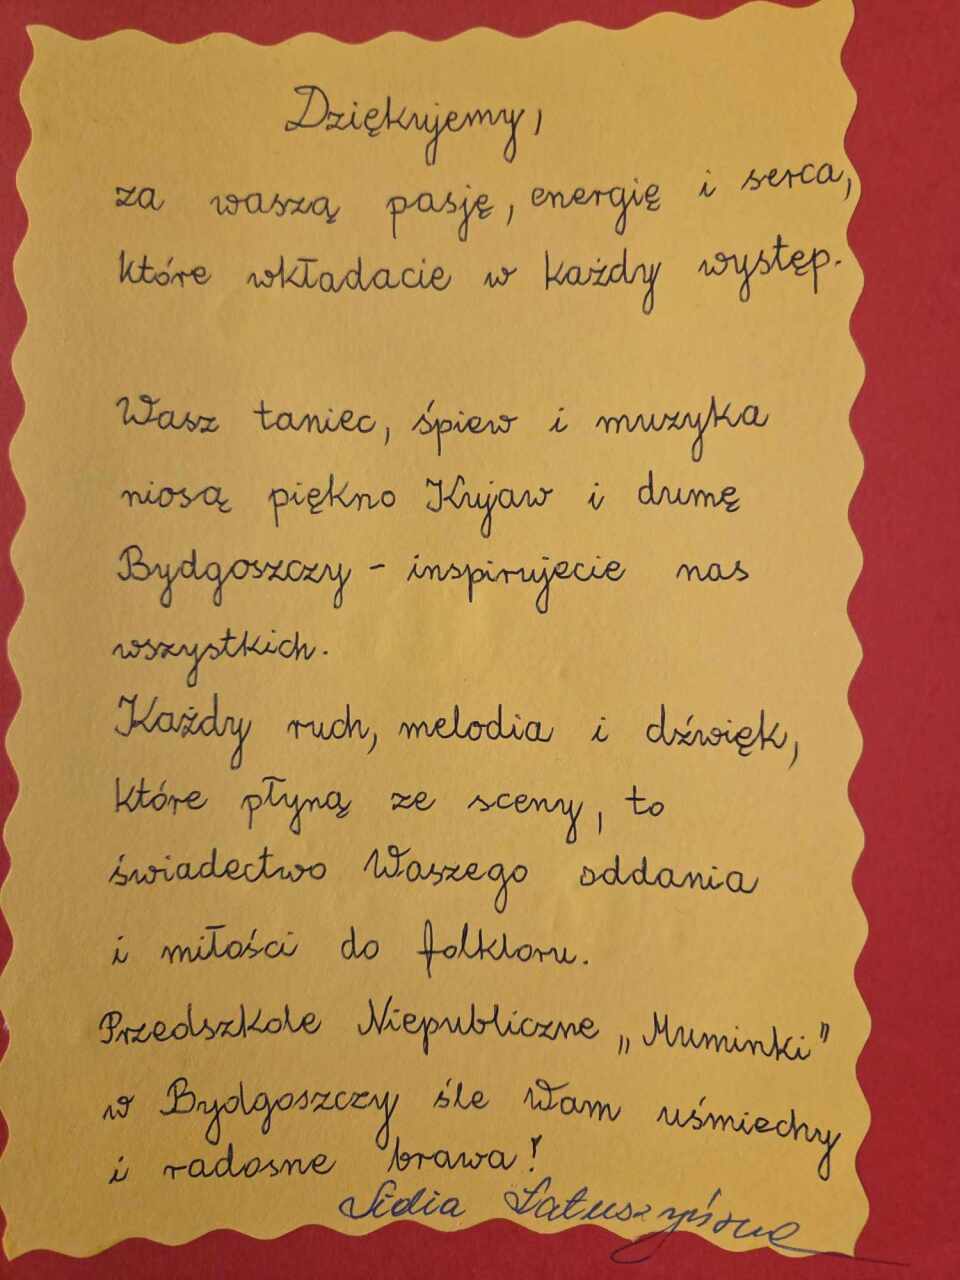 Dziękujemy,
za waszą pasję, energię i serca,
które wkładacie w każdy występ.
Wasz taniec, śpiew i muzyka
niosą piękno Kujaw i dumę
Bydgoszczy - inspirujecie nas
wszystkich.
Każdy ruch, melodia i dźwięk,
które płyną ze sceny, to
świadectwo Waszego oddania
i miłości do folkloru.
Przedszkole Niepubliczne „Muminki”
w Bydgoszczy śle Wam uśmiechy
i radosne brawa!
Lidia